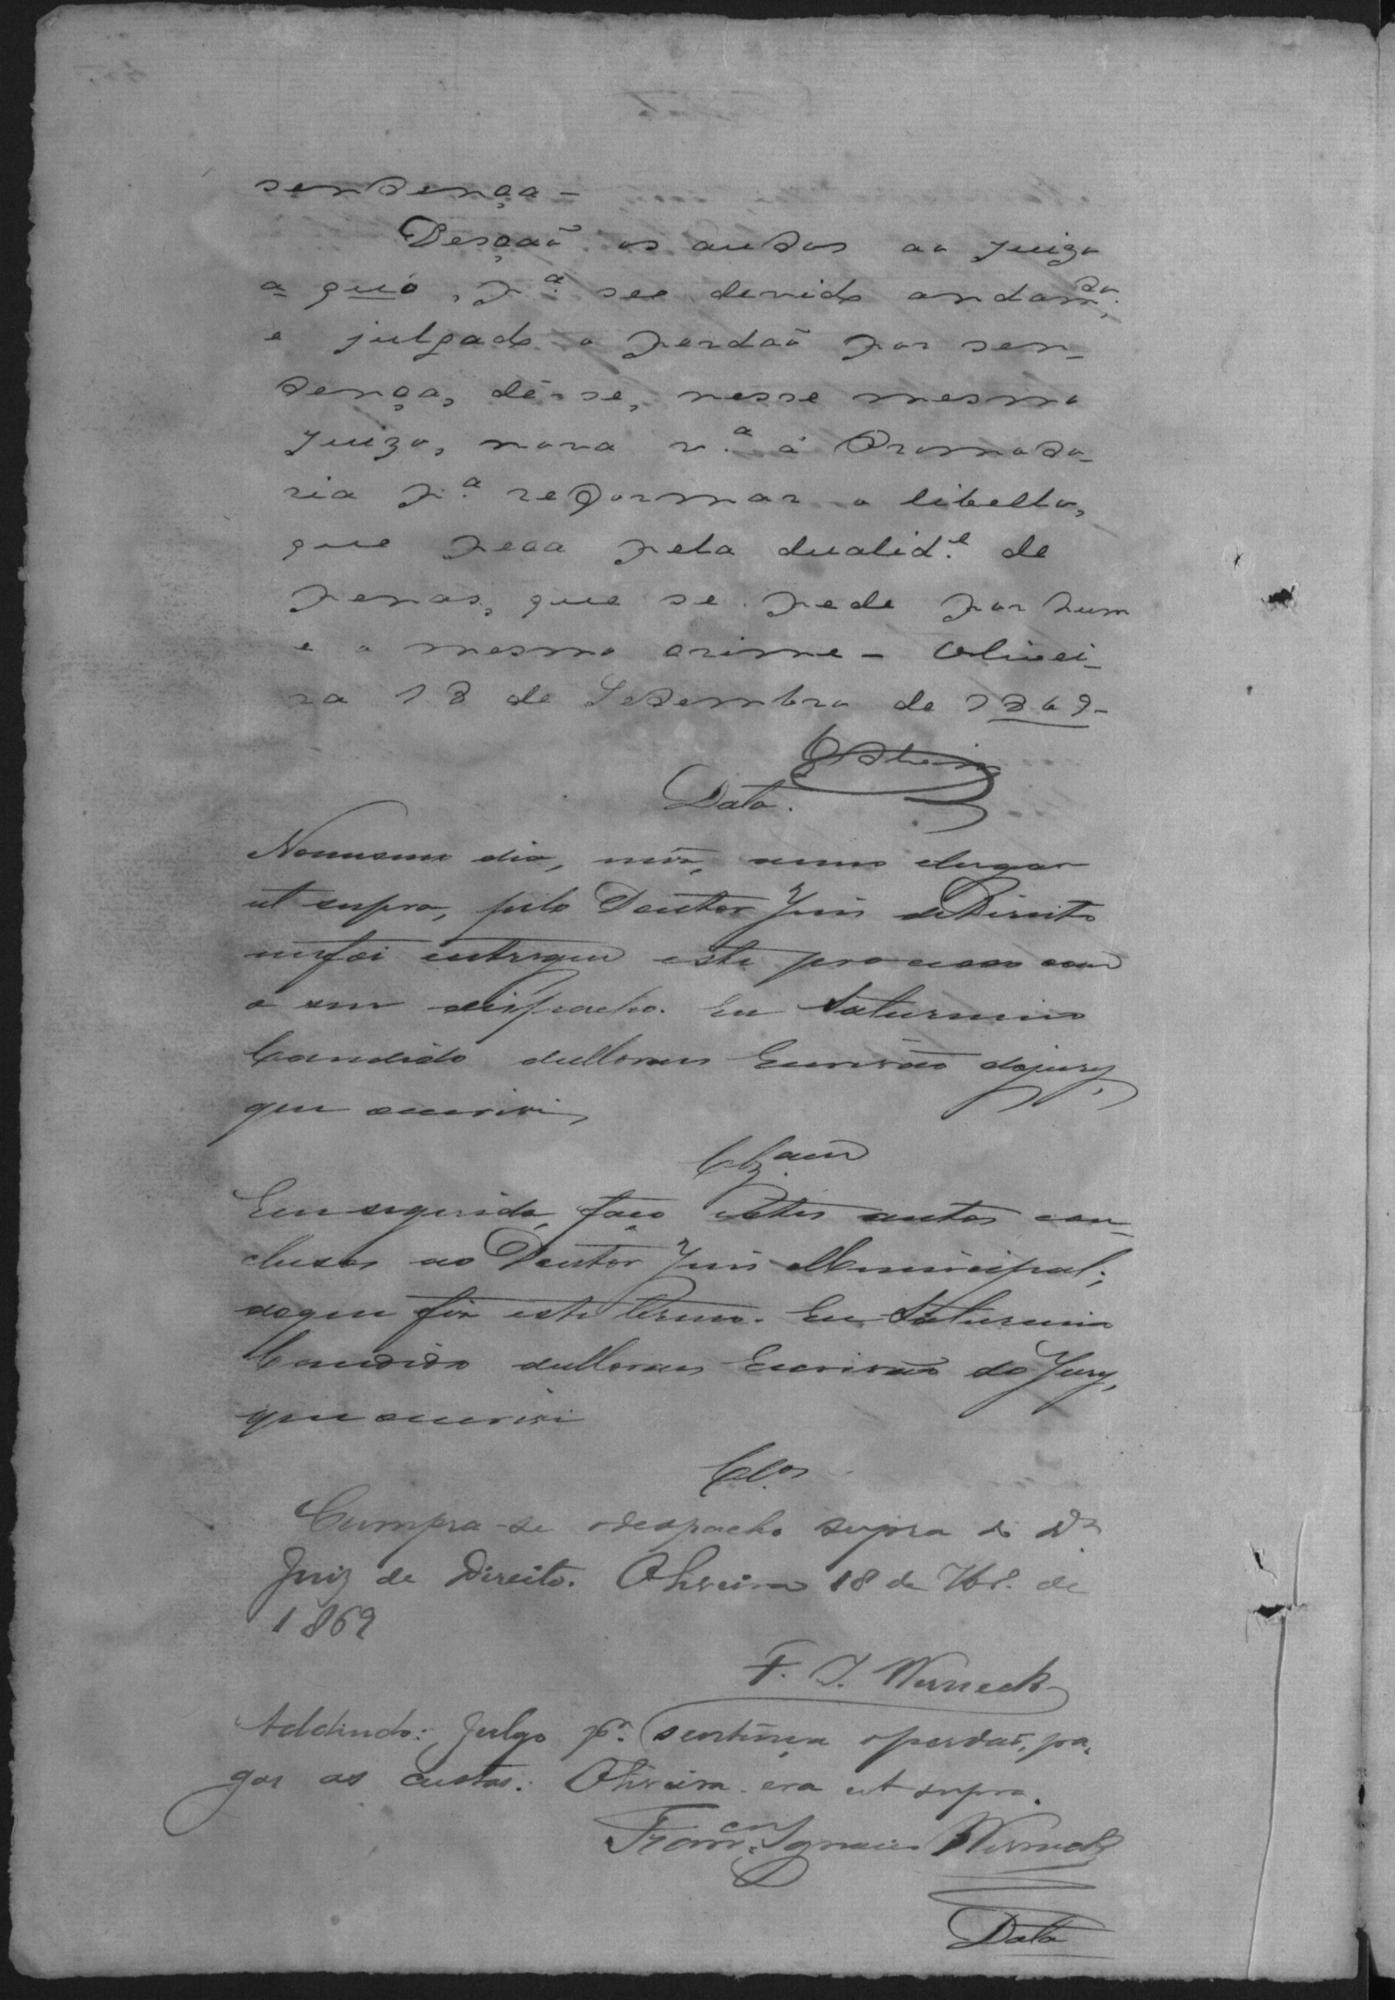 sentença –
Desção os autos ao juizo
a quó, p.ª seo devido andam.to
e julgado o perdaõ por sen-
tença, dê-se, nesse mesmo
juizo, nova v.ª á Promoto-
ria p.ª reformar o libello,
que peca pela dualid.e de
penas, que se pede por hum
e o mesmo crime – Olivei-
ra 18 de Setembro de 1869 –
Data.
No mesmo dia, mêz, anno elugar
ut supra, pelo Doutor Juis deDireito
mefoi entregue este processo com
o seu despacho. Eu Saturnino
Candido deMoraes Escrivão dojury,
que escrivi,
Clz.am
Em seguida, faço estes autos con-
clusos ao Doutor Juis Municipal;
doque fiz este termo. Eu Saturnino
Candido deMoraes Escrivão do Jury,
que escrivi
Cl.os
Cumpra-se odespacho supra do Dr.
Juiz de Direito. Oliveira 18 de 7br.o de
1869
F. I. Werneck
Addindo: Julgo p.r sentença operdão, pa-
gas as custas. Oliveira era ut supra.
Fran.co Ignacio Werneck
Data